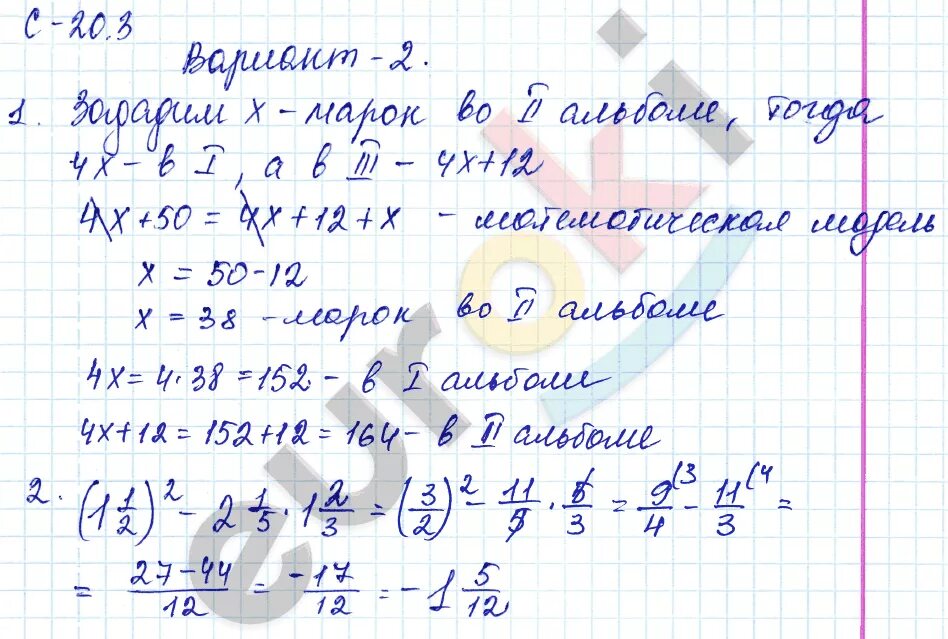 С-20.3
Вариант-2.
1. Зададим x-марок во II альбоме, тогда
4x-в I, а в III-4x+12
4x+50=4x+12+x - математическая модель
x=50-12
x=38 -марок во II альбоме
4x=4·38=152- в I альбоме
4x+12=152+12=164- в II альбоме
2. (1 1/2)^2 - 2 1/5 · 1 2/3 = (3/2)^2 - 11/5 · 5/3 = 9/4 (3 - 11/3 (4 =
= 27-44/12 = -17/12 = -1 5/12
euroki